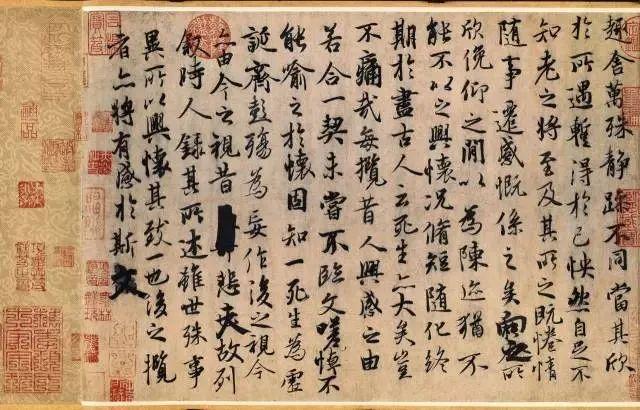 趣舍萬殊静躁不同當其欣
於所遇蹔得於己怏然自足不
知老之將至及其所之既惓情
随事遷感慨係之矣向之所
欣俛仰之閒以為陳迹猶不
能不以之興懷况脩短随化終
期於盡古人云死生亦大矣豈
不痛哉每攬昔人興感之由
若合一契未嘗不臨文嗟悼不
能喻之於懷固知一死生為虚
誕齊彭殤為妄作後之視今
亦由今之視昔悲夫故列
叙時人録其所述雖世殊事
異所以興懷其致一也後之攬
者亦將有感於斯文